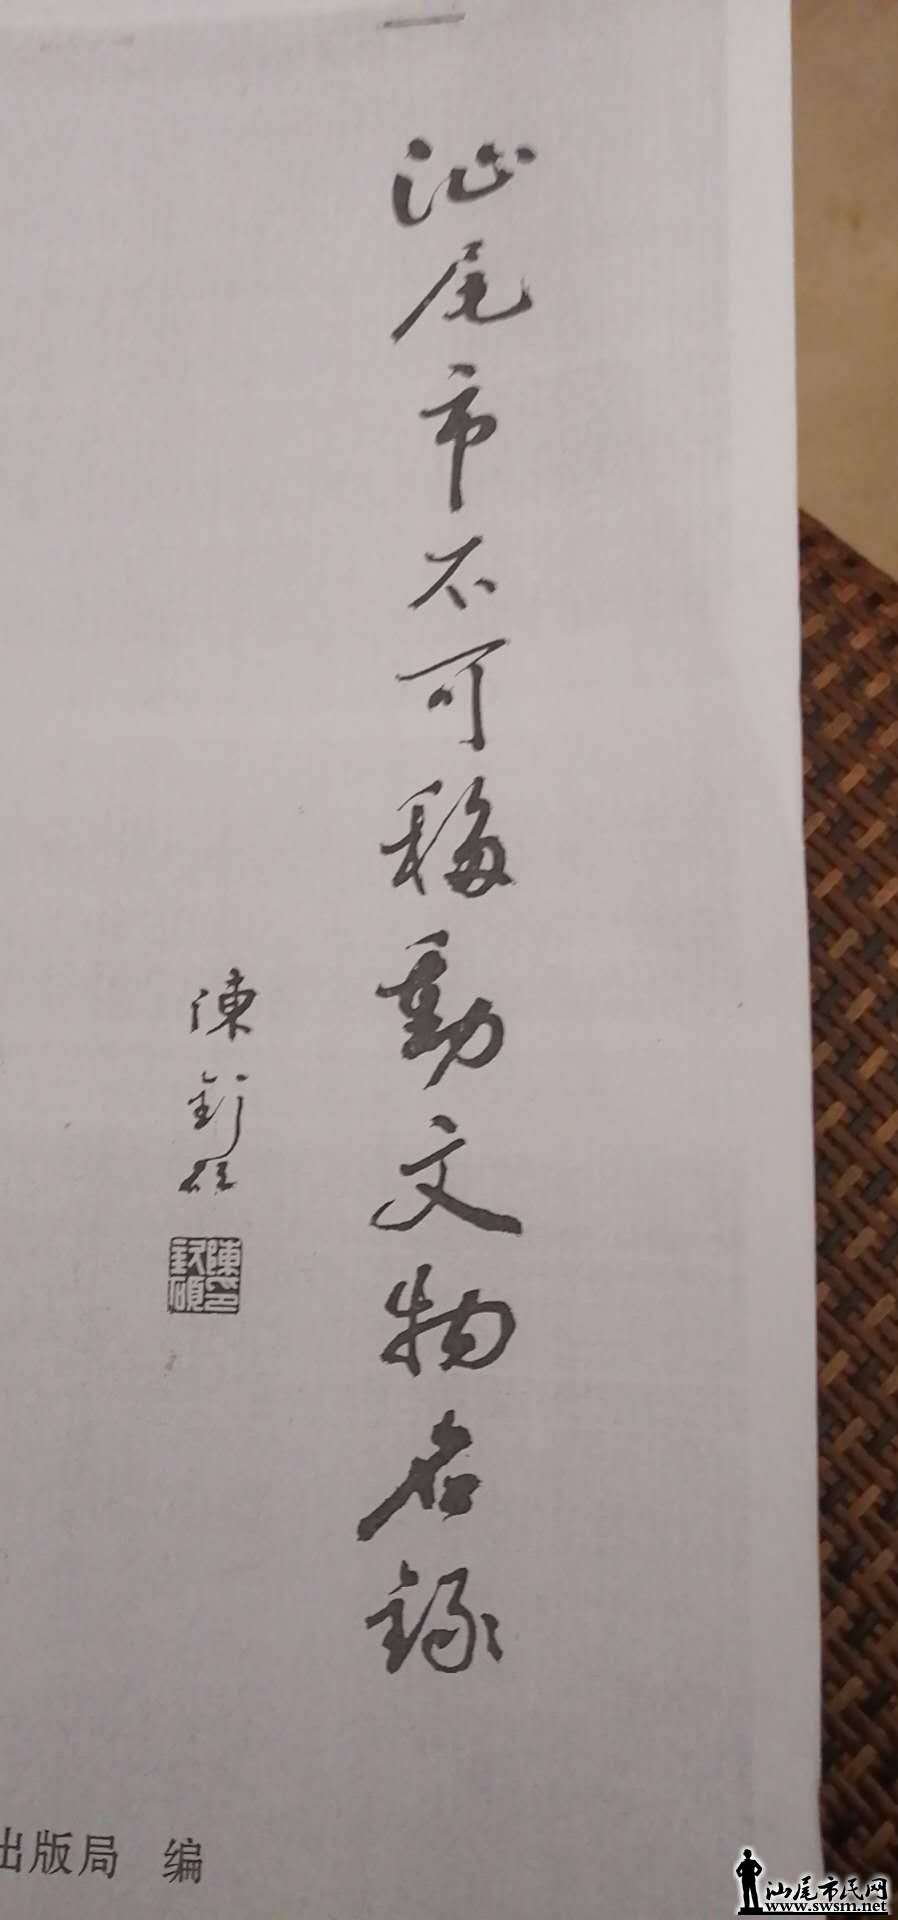 汕尾市不可移動文物名錄
陳釗碩
陳釗碩印
出版局 编
汕尾市民网
www.swsm.net